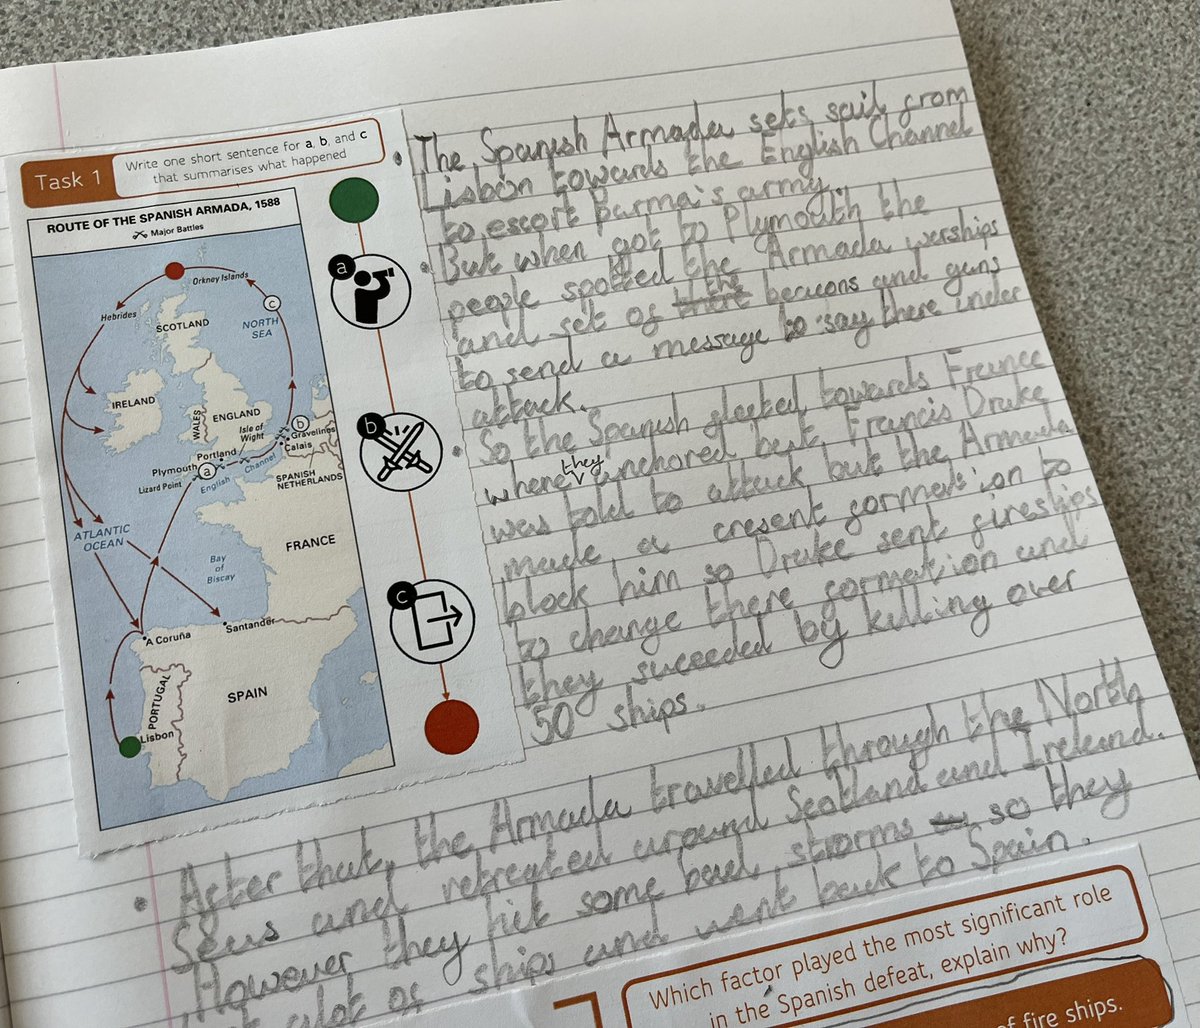 Task 1
Write one short sentence for a, b, and c
that summarises what happened
ROUTE OF THE SPANISH ARMADA, 1588
Major Battles
Orkney Islands
Hebrides
c
NORTH
SEA
SCOTLAND
IRELAND
WALES
ENGLAND
Isle of
Wight
b
Gravelines
Calais
Portland
Plymouth
a
Lizard Point
English Channel
SPANISH
NETHERLANDS
ATLANTIC
OCEAN
Bay
of
Biscay
FRANCE
A Coruña
Santander
PORTUGAL
SPAIN
Lisbon
a
b
c
• The Spanish Armada sets sail from
Lisbon towards the English Channel
to escort Parma's army.
• But when got to Plymouth the
people spotted the Armada warships
and set of the beacons and guns
to send a message to say there under
attack.
• So the Spanish fleeted towards France
where they anchored but Francis Drake
was told to attack but the Armada
made a cresent formation to
block him so Drake sent fireships
to change there formation and
they succeeded by killing over
50 ships.
• After that, the Armada travelled through the North
Seas and retreated around Scotland and Ireland.
However, they hit some bad storms so they
lot of ships and went back to Spain.
Which factor played the most significant role
in the Spanish defeat, explain why?
of fire ships.